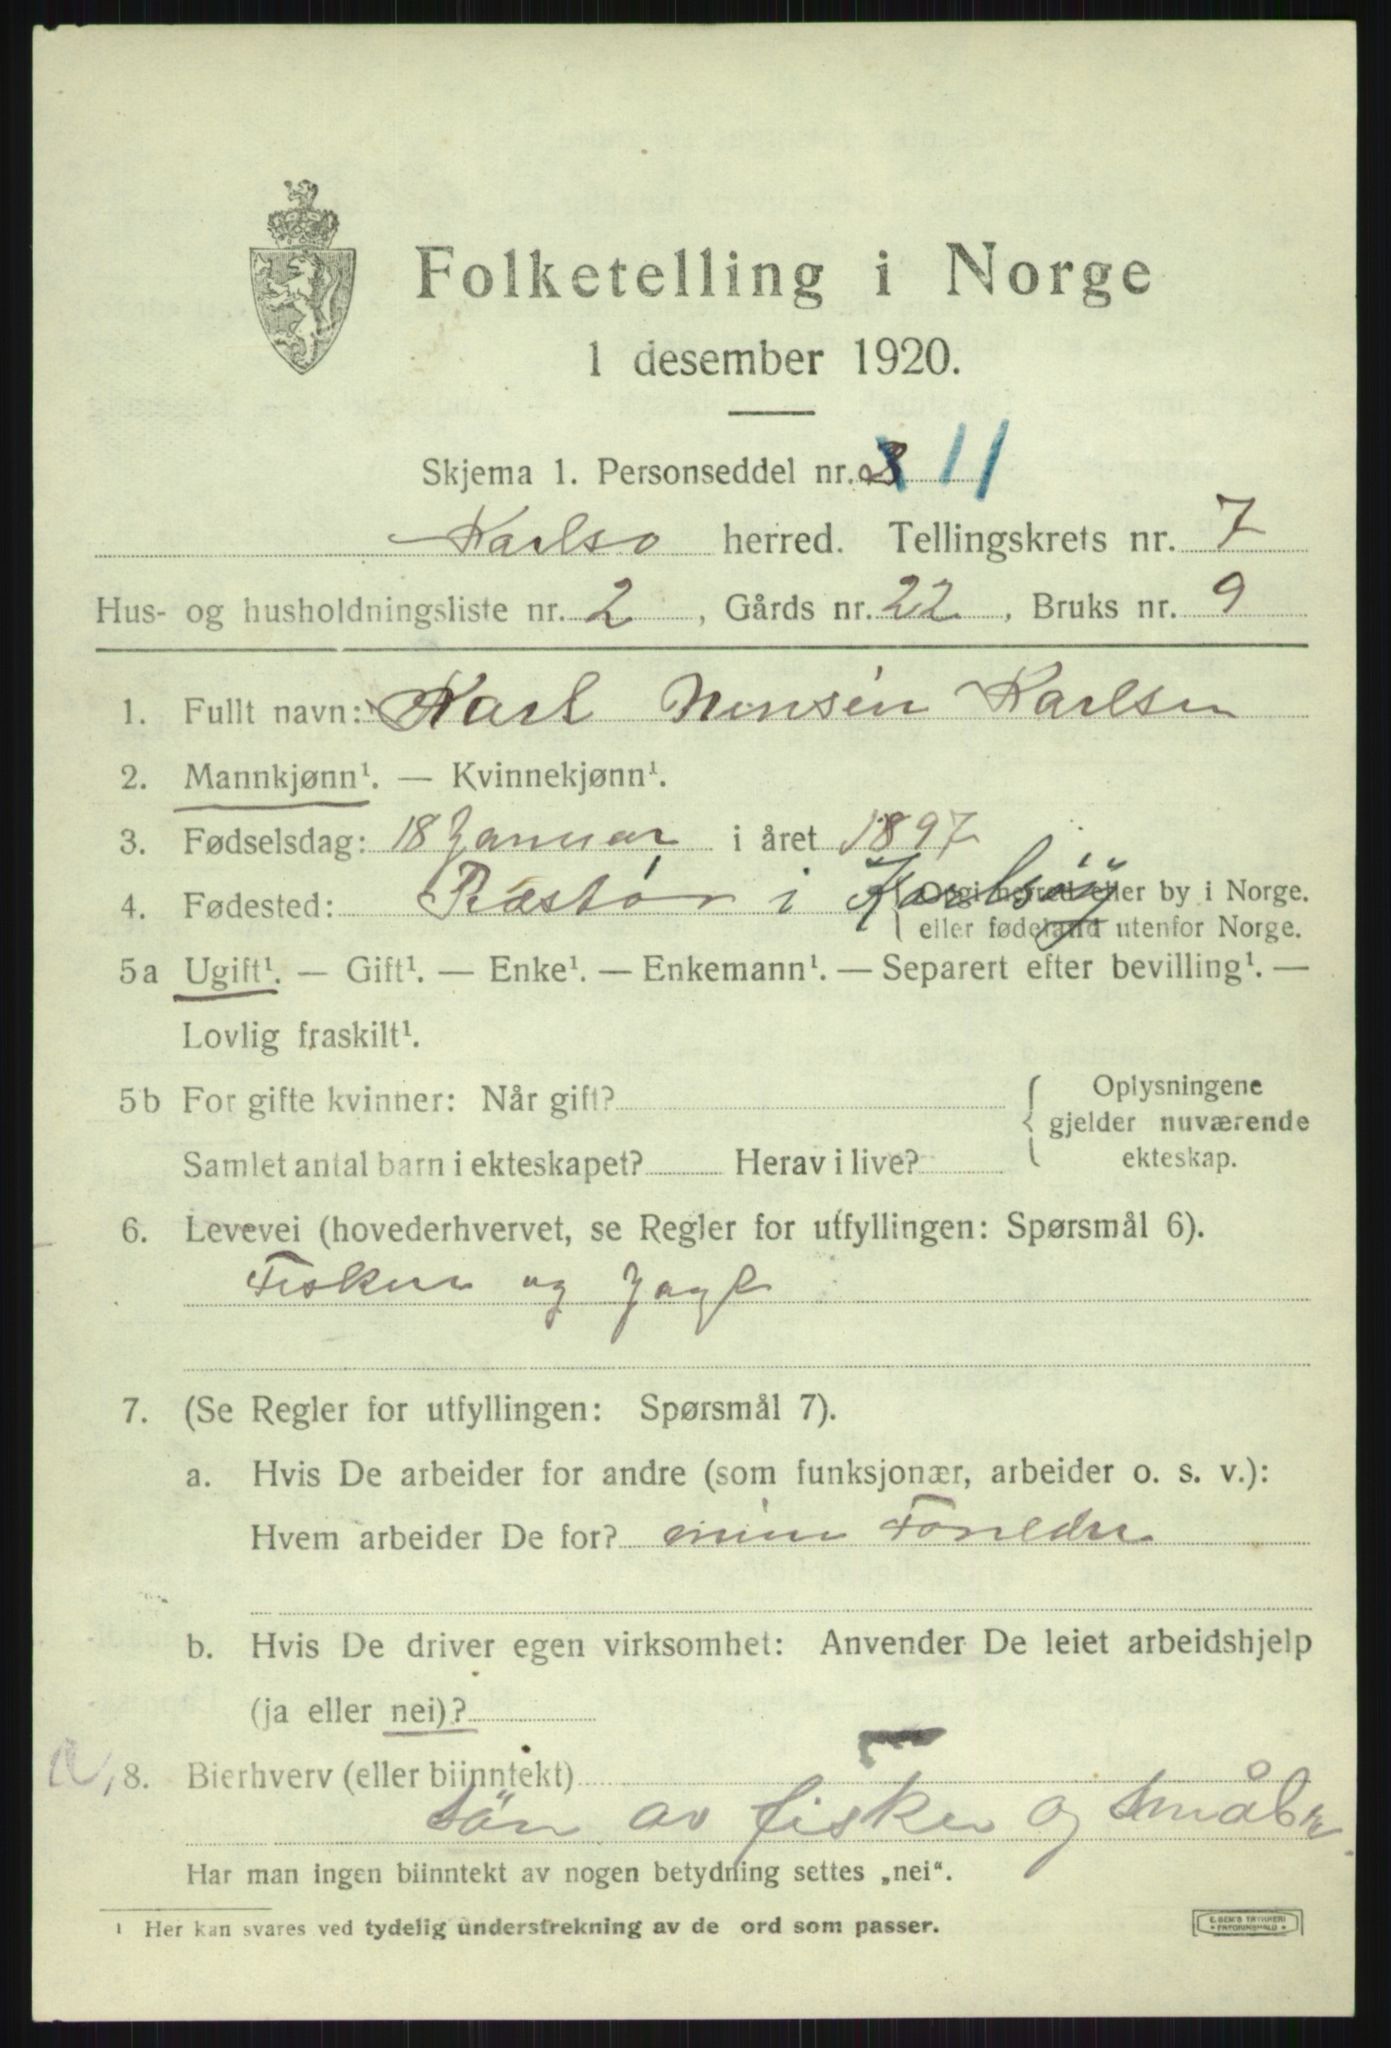 Folketelling i Norge
1 desember 1920.
Skjema 1. Personseddel nr. 11
Karlsø herred. Tellingskrets nr. 7
Hus- og husholdningsliste nr. 2, Gårds nr. 22, Bruks nr. 9
1. Fullt navn: Karl Karlsen
2. Mannkjønn¹. — Kvinnekjønn¹.
3. Fødselsdag: 18 Januar i året 1897
4. Fødested: i Karlsøy { Opgi herred eller by i Norge.
eller fødeland utenfor Norge.
5a Ugift¹. — Gift¹. — Enke¹. — Enkemann¹. — Separert efter bevilling¹. —
Lovlig fraskilt¹.
5b For gifte kvinner: Når gift? { Oplysningene
gjelder nuværende
Samlet antal barn i ekteskapet? Herav i live? ekteskap.
6. Levevei (hovederhvervet, se Regler for utfyllingen: Spørsmål 6).
Fisker og
7. (Se Regler for utfyllingen: Spørsmål 7).
a. Hvis De arbeider for andre (som funksjonær, arbeider o. s. v.):
Hvem arbeider De for? mine Foreldre
b. Hvis De driver egen virksomhet: Anvender De leiet arbeidshjelp
(ja eller nei)?
8. Bierhverv (eller biinntekt)
Sön av fisker og småbr.
Har man ingen biinntekt av nogen betydning settes „nei“.
¹ Her kan svares ved tydelig understrekning av de ord som passer.